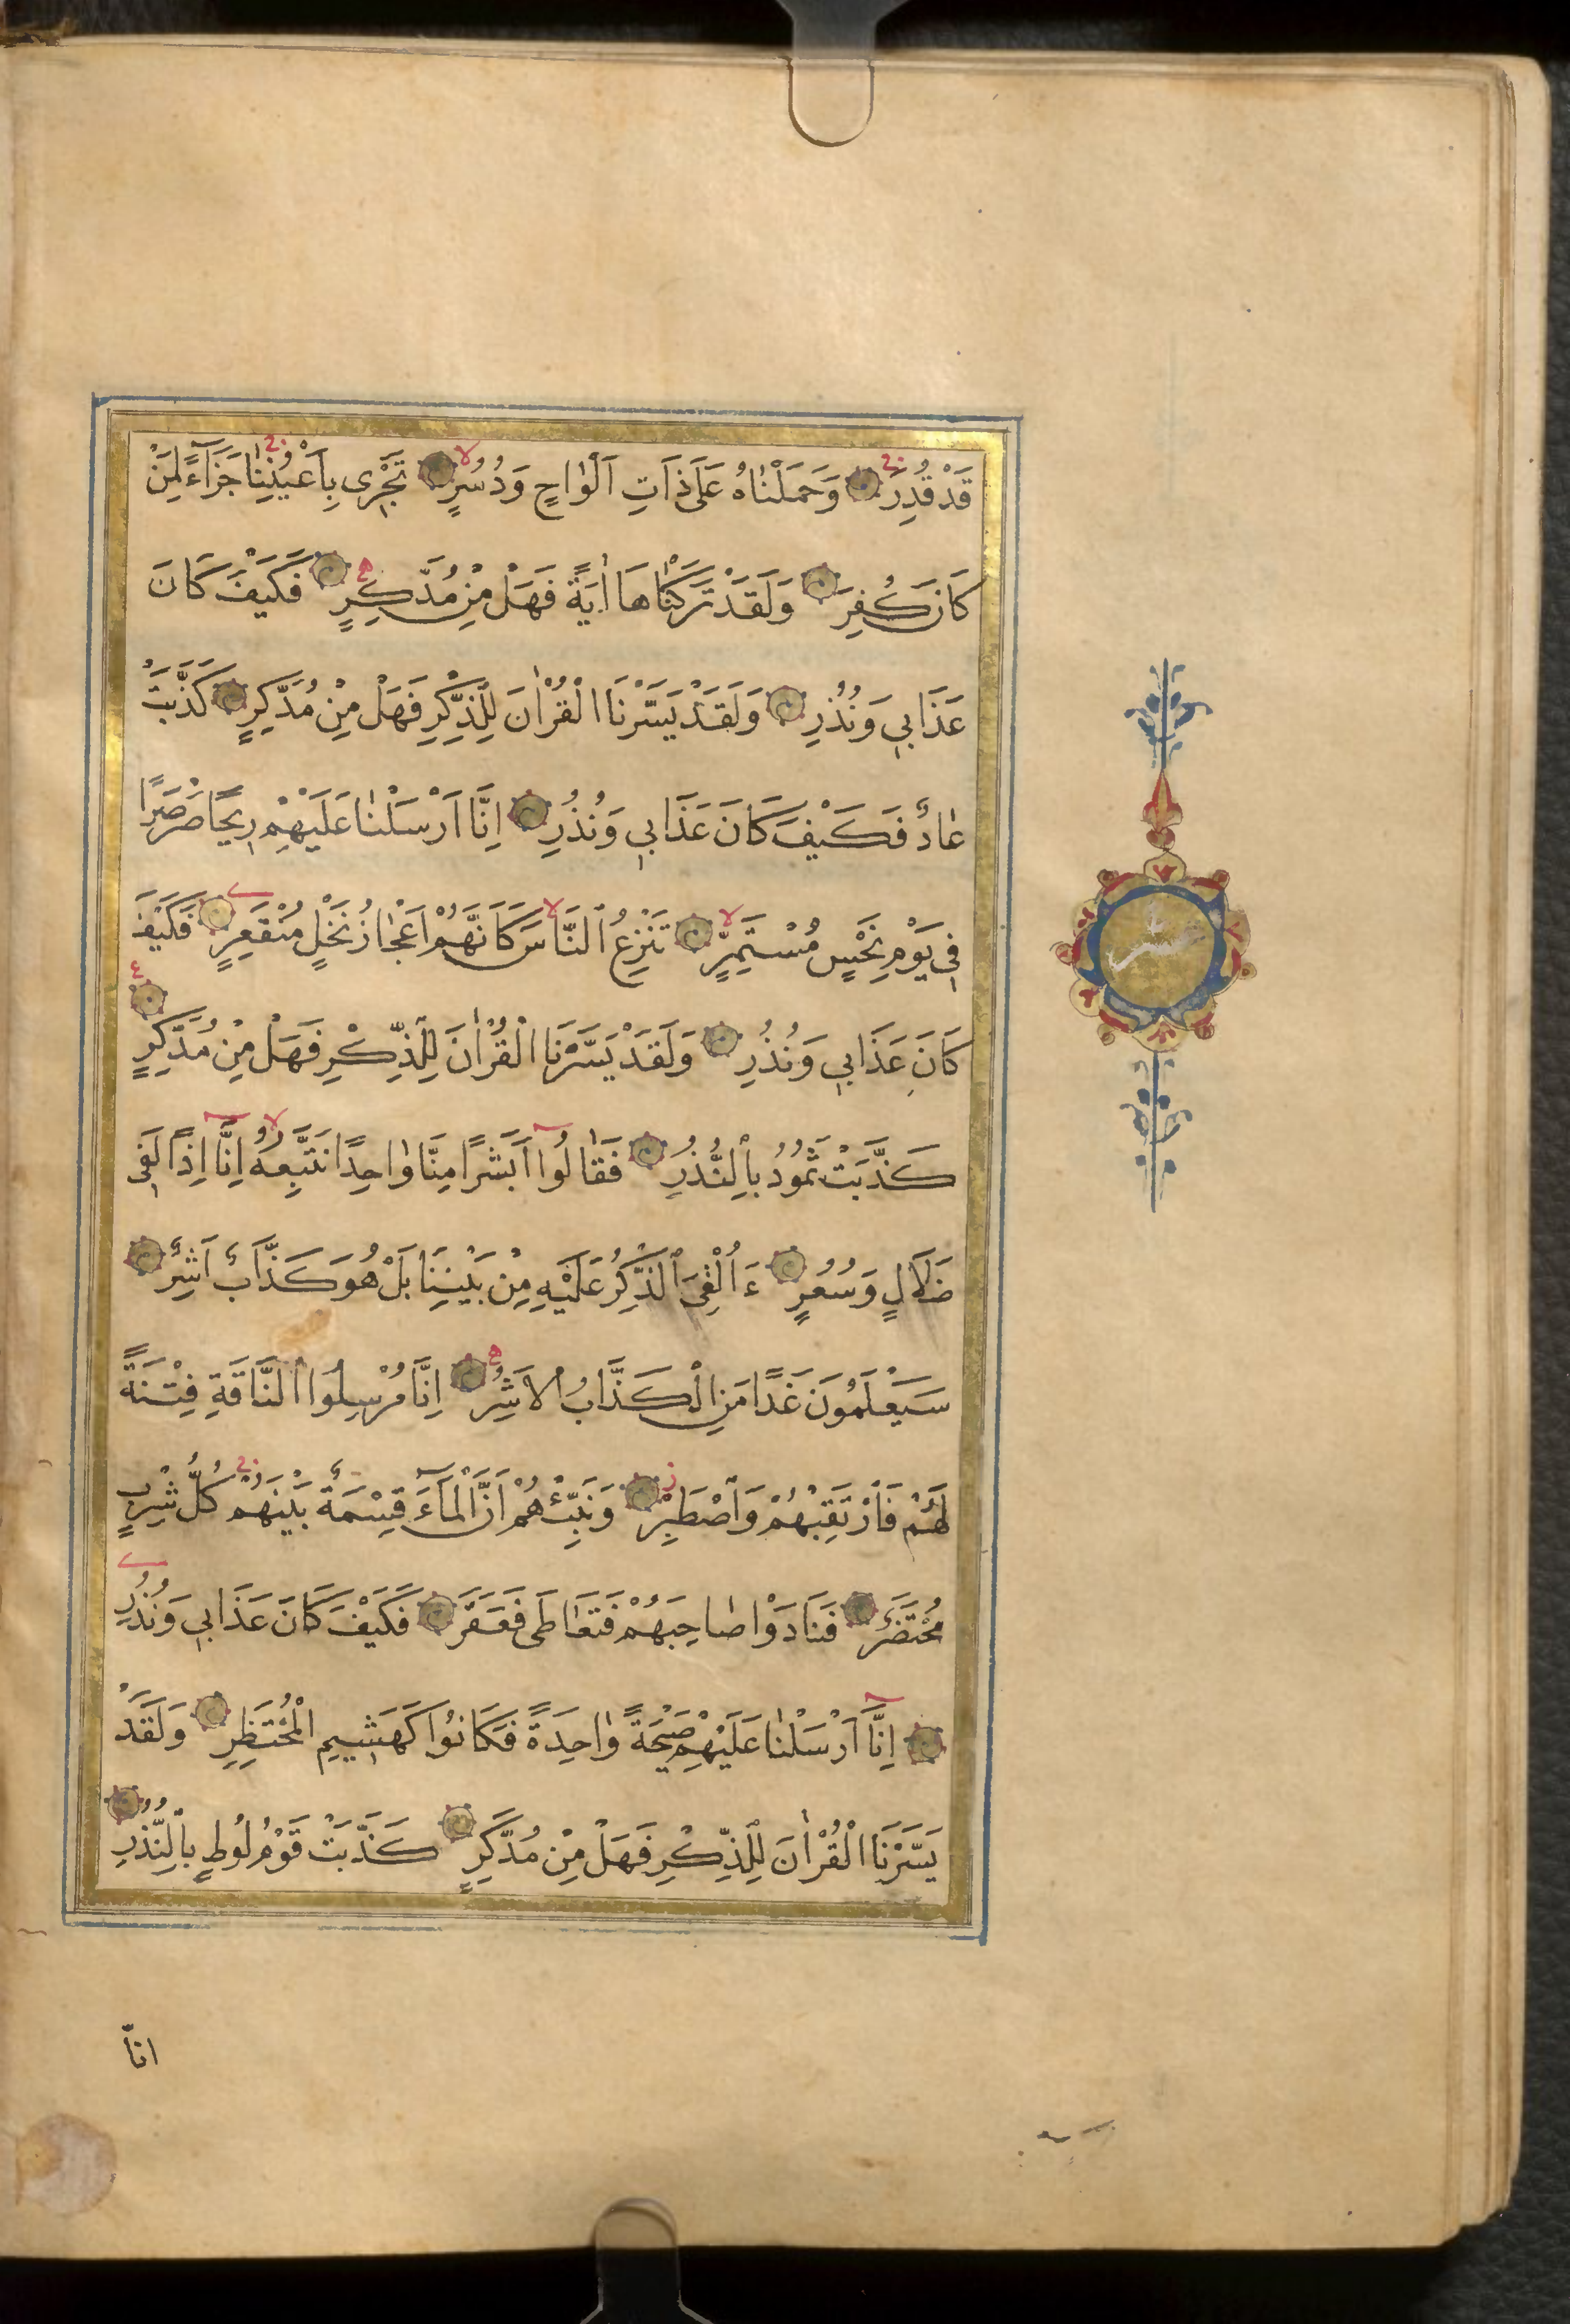 قَدْ قُدِرَ وَحَمَلْنٰاهُ عَلَى ذَاتِ اَلْوٰاحٍ وَدُسُرٍ تَجْرِى بِاَعْيُنِنٰا جَزَآءً لِمَنْ
كَانَ كُفِرَ وَلَقَدْ تَرَكْنٰاهَا اٰيَةً فَهَلْ مِنْ مُدَّكِرٍ فَكَيْفَ كَانَ
عَذَابِى وَنُذُرِ وَلَقَدْ يَسَّرْنَا الْقُرْاٰنَ لِلذِّكْرِ فَهَلْ مِنْ مُدَّكِرٍ كَذَّبَتْ
عٰادٌ فَكَيْفَ كَانَ عَذَابِى وَنُذُرِ اِنَّا اَرْسَلْنٰا عَلَيْهِمْ رِيحًا صَرْصَرًا
فِى يَوْمِ نَحْسٍ مُسْتَمِرٍّ تَنْزِعُ النَّاسَ كَاَنَّهُمْ اَعْجٰازُ نَخْلٍ مُنْقَعِرٍ فَكَيْفَ
كَانَ عَذَابِى وَنُذُرِ وَلَقَدْ يَسَّرْنَا الْقُرْاٰنَ لِلذِّكْرِ فَهَلْ مِنْ مُدَّكِرٍ
كَذَّبَتْ ثَمُودُ بِالنُّذُرِ فَقٰالُوا اَبَشَرًا مِنَّا وٰاحِدًا نَتَّبِعُهُ اِنَّا اِذًا لَفِى
ضَلَالٍ وَسُعُرٍ ءَاُلْقِىَ الذِّكْرُ عَلَيْهِ مِنْ بَيْنِنَا بَلْ هُوَ كَذَّابٌ اَشِرٌ
سَيَعْلَمُونَ غَدًا مَنِ الْكَذَّابُ الْاَشِرُ اِنَّا مُرْسِلُوا النَّاقَةِ فِتْنَةً
لَهُمْ فَارْتَقِبْهُمْ وَاصْطَبِرْ وَنَبِّئْهُمْ اَنَّ الْمَآءَ قِسْمَةٌ بَيْنَهُمْ كُلُّ شِرْبٍ
مُحْتَضَرٌ فَنَادَوْا صٰاحِبَهُمْ فَتَعَاطَى فَعَقَرَ فَكَيْفَ كَانَ عَذَابِى وَنُذُرِ
اِنَّا اَرْسَلْنٰا عَلَيْهِمْ صَيْحَةً وٰاحِدَةً فَكَانُوا كَهَشِيمِ الْمُحْتَظِرِ وَلَقَدْ
يَسَّرْنَا الْقُرْاٰنَ لِلذِّكْرِ فَهَلْ مِنْ مُدَّكِرٍ كَذَّبَتْ قَوْمُ لُوطٍ بِالنُّذُرِ
عشر
انّا